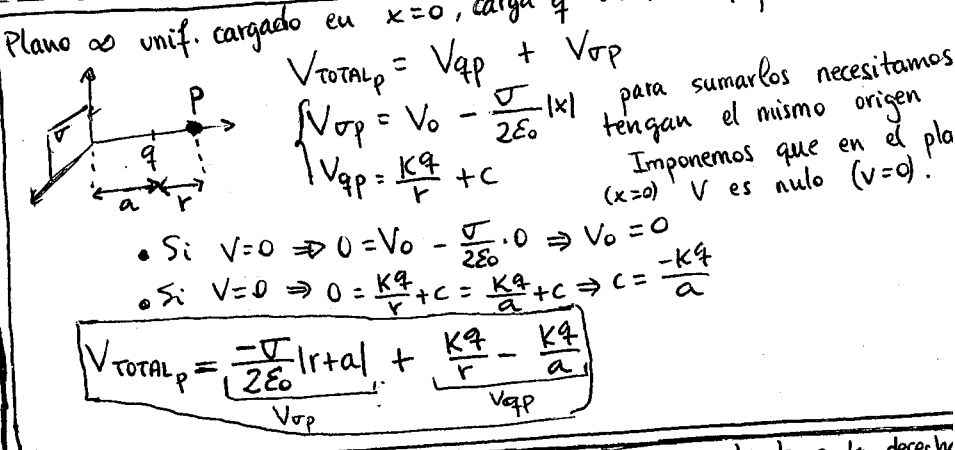 Plano ∞ unif. cargado en x=0, carga q
V_TOTAL_P = V_qP + V_σP
V_σP = V_0 - σ/2ε_0 |x| para sumarlos necesitamos
V_qP = Kq/r + C tengan el mismo origen
Imponemos que en el pla
(x=0) V es nulo (V=0).
P
σ
q
a r
• Si V=0 ⇒ 0 = V_0 - σ/2ε_0 · 0 ⇒ V_0 = 0
• Si V=0 ⇒ 0 = Kq/r + C = Kq/a + C ⇒ C = -Kq/a
V_TOTAL_P = -σ/2ε_0 |r+a| + Kq/r - Kq/a
V_σP V_qP
derecha